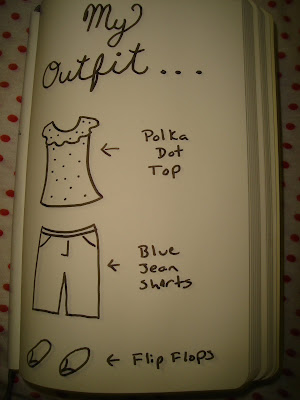 My
Outfit...
Polka
Dot
Top
Blue
Jean
Shorts
Flip Flops